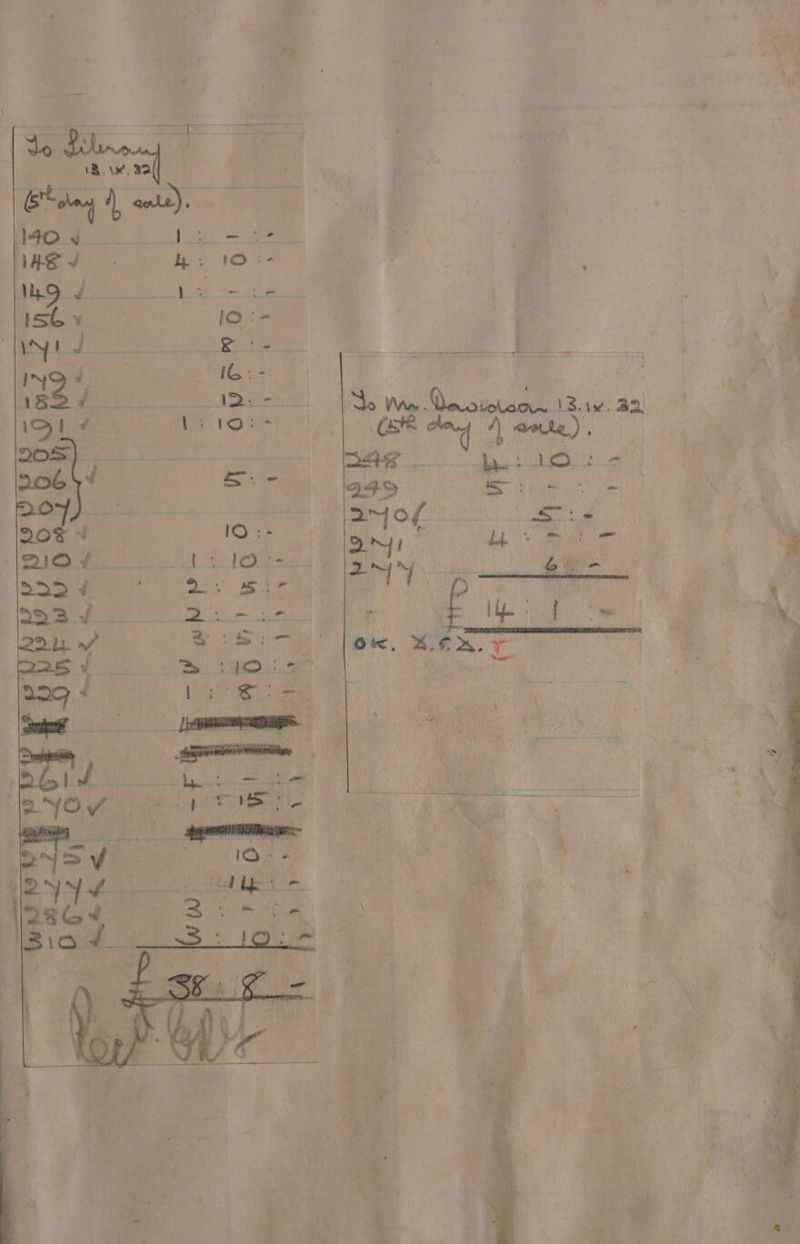 To Library
13.IV.32
(5th day of sale).
140 √ 1 : - : -
148 √ 4 : 10 : -
149 √ 1 : - : -
156 √ 10 : -
171 √ 8 : -
179 √ 16 : -
182 √ 12 : -
191 √ 1 : 10 : -
205
206 } √ 5 : -
207
208 √ 10 : -
210 √ 1 : 10 : -
222 √ 2 : 5 : -
223 √ 2 : - : -
224 √ 3 : 5 : -
225 √ 3 : 10 : -
229 √ 1 : 8 : -
261 √ 4 : - : -
270 √ 1 : 15 : -
275 √ 10 : -
277 √ 4 : -
286 √ 3 : - : -
310 √ 3 : 10 : -
£ 38 : 8 : -
To Mr. Davidson 13.IV.32
(5th day of sale).
248 4 : 10 : -
249 5 : - : -
270 5 : -
271 4 : - : -
277 6 : -
£ 14 : 1 : -
OK.